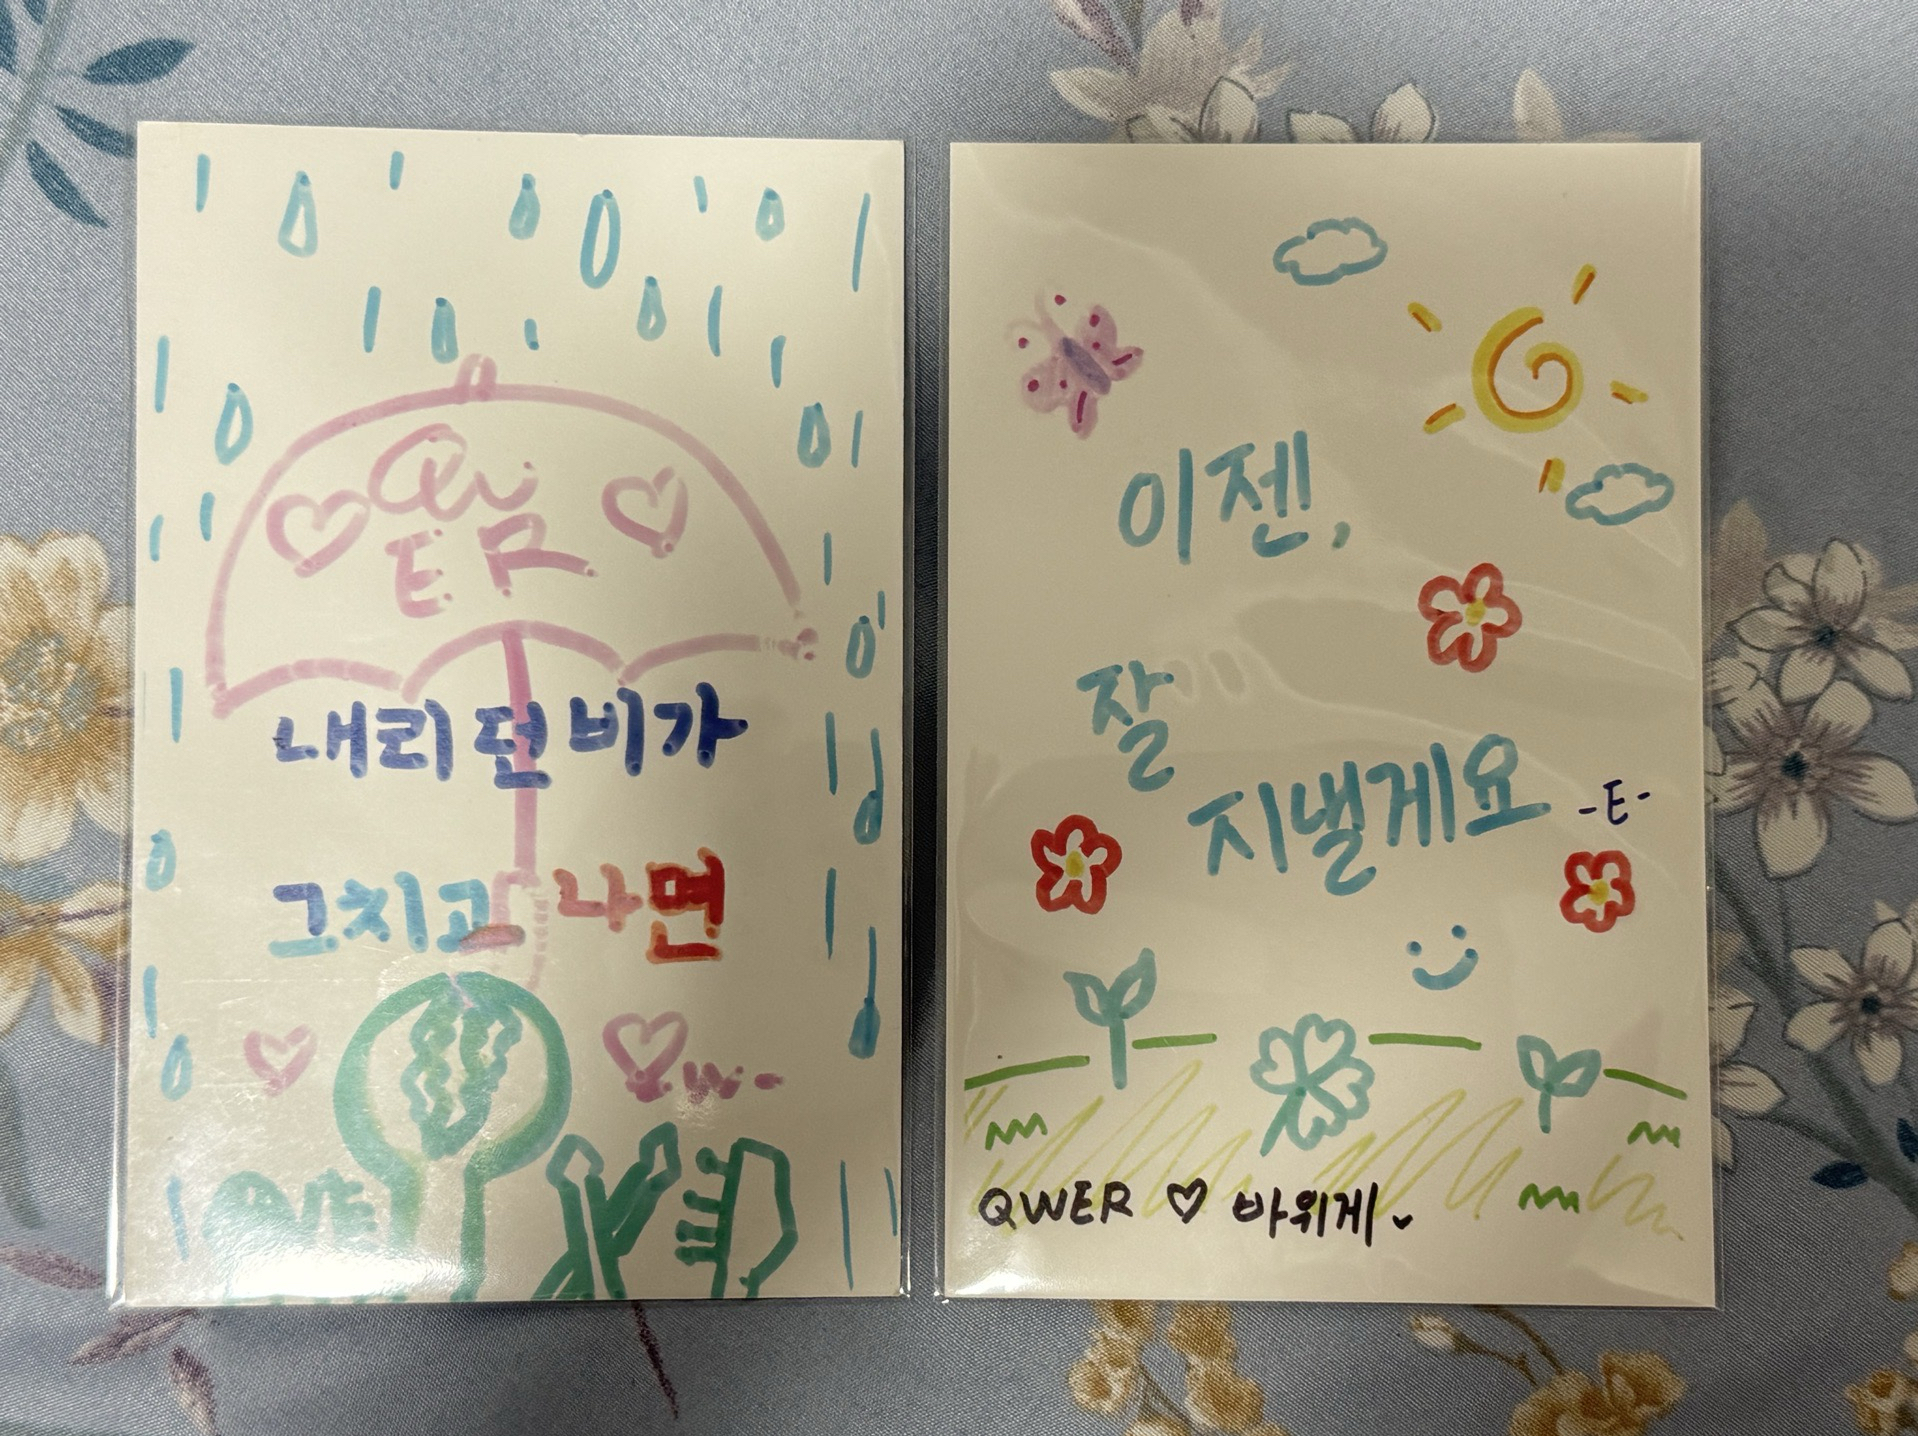 QW
ER
내리던비가
그치고 나면
이젠,
잘
지낼게요
-E-
QWER ♡ 바위게